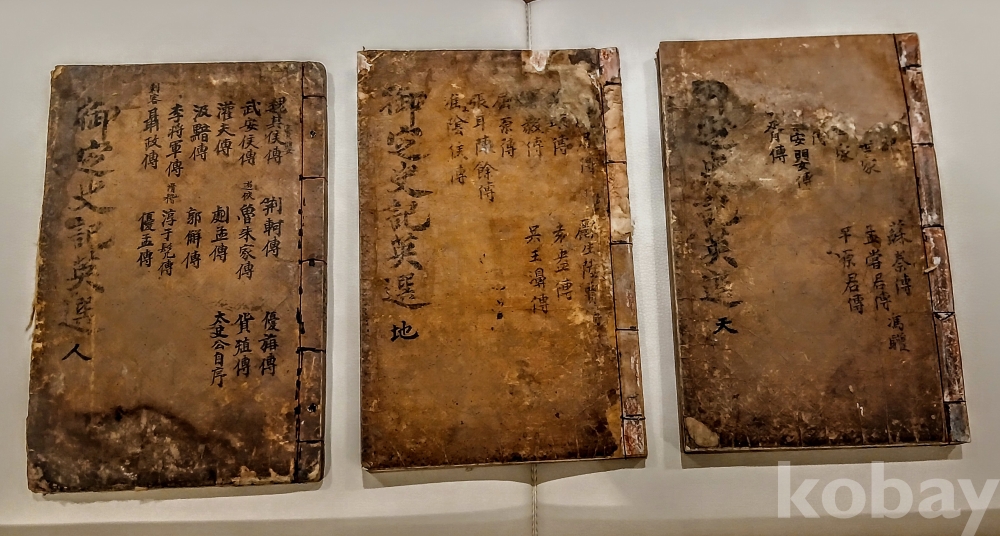 蘇秦傳
世家
孟嘗君傳 馮驩
家
平原君傳
御定史記英選 天
袁盎傳
吳王濞傳
屈原傳
張耳陳餘傳
淮陰侯傳
御定史記英選 地
魏其侯傳 荊軻傳 優旃傳
武安侯傳 遊俠 魯朱家傳 貨殖傳
灌夫傳 劇孟傳 太史公自序
汲黯傳 郭解傳
李將軍傳 滑稽 淳于髡傳
刺客 聶政傳 優孟傳
御定史記英選 人
kobay